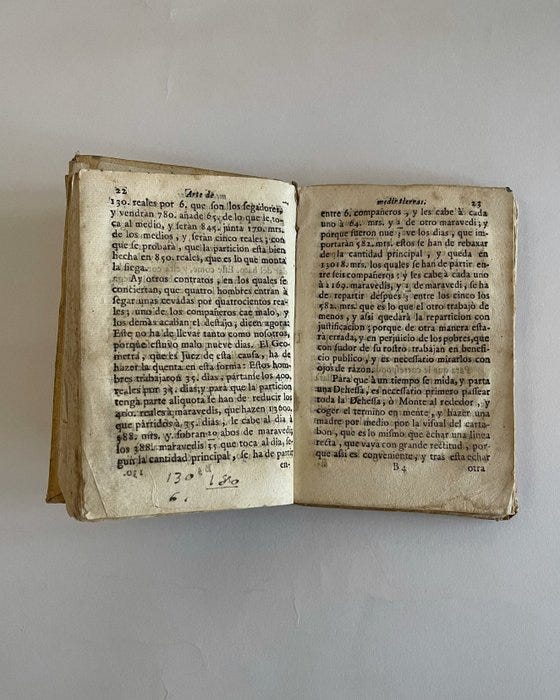 22 Arte de
130. reales por 6. que son los segadores,
y vendràn 780. añade 65. de lo que le to-
ca al medio, y seràn 845. junta 170. mrs.
de los medios, y seràn cinco reales; con
que se probarà, que la particion està bien
hecha en 850. reales, que es lo que monta
la siega.
Ay otros contratos, en los quales se
conciertan, que quatro hombres entran à
segar unas cevadas por quatrocientos rea-
les; uno de los compañeros cae malo, y
los demàs acaban el destajo, dicen agora:
Este no ha de llevar tanto como nosotros,
porque estuvo malo nueve dias. El Geo-
metra, que es Juez de esta causa, ha de
hazer la quenta en esta forma: Estos hom-
bres trabajaron 35. dias, pártanse los 400.
reales por 35. dias; y para que la particion
tenga parte aliquota se han de reducir los
400. reales à maravedis, que hazen 13600.
que partidos à 35. dias; le cabe al dia à
388. mrs. y sobran 20 abos de maravedi,
los 388. maravedis 15. que toca al dia, se-
gun la cantidad principal, se ha de partir
en-
130 180
6.
medir tierras. 23
entre 6. compañeros, y les cabe à cada
uno à 64. mrs. y 2 de otro maravedi; y
porque fueron nue ; ve los dias, que im-
portaràn 582. mrs. estos se han de rebaxar
de la cantidad principal, y queda en
13018. mrs. los quales se han de partir en-
tre seis compañeros; y les cabe à cada uno
à 2169. maravedis, y 2 de maravedi, se ha
de repartir despues ; entre los cinco los
582. mrs. que es lo que el otro trabajò de
menos, y asi quedarà la reparticion con
justificacion; porque de otra manera esta-
rà errada, y en perjuicio de los pobres, que
con sudor de su rostro trabajan en benefi-
cio publico, y es necesario mirarlos con
ojos de razon.
Para que à un tiempo se mida, y parta
una Dehessa, es necesario primero passear
toda la Dehessa, ò Monte al rededor, y
coger el termino en mente, y hazer una
madre por medio por la visual del carta-
bon, que es lo mismo que echar una linea
recta, que vaya con grande rectitud, por-
que assi es conveniente, y tras esta echar
B 4 otra